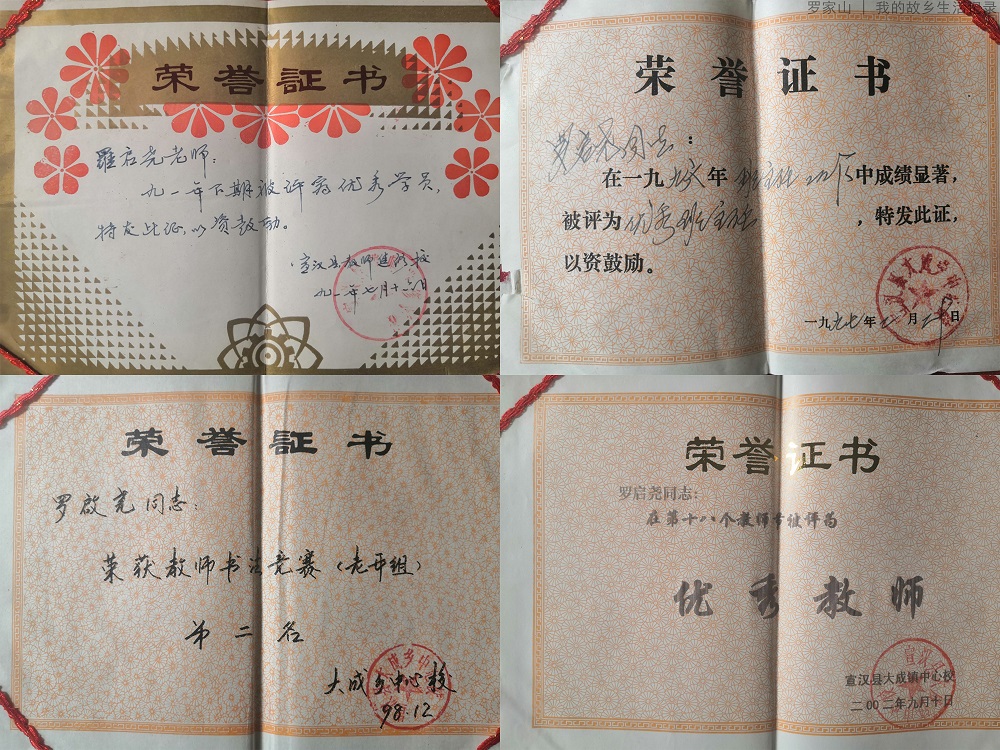 罗家山 | 我的故乡生活记录
荣誉証书
羅启尧老师：
九一年下期被评为优秀学员，
特发此证，以资鼓励。
宣汉县教师进修校
九一年七月十六日
荣誉证书
罗启尧同志：
在一九九六年班主任工作中成绩显著，
被评为优秀班主任，特发此证，
以资鼓励。
一九九七年 月 日
荣誉証书
罗啟尧同志：
荣获教师书法竞赛（老年组）
第二名
大成乡中心校
98.12
荣誉证书
罗启尧同志：
在第十八个教师节被评为
优秀教师
宣汉县大成镇中心校
二00二年九月十日